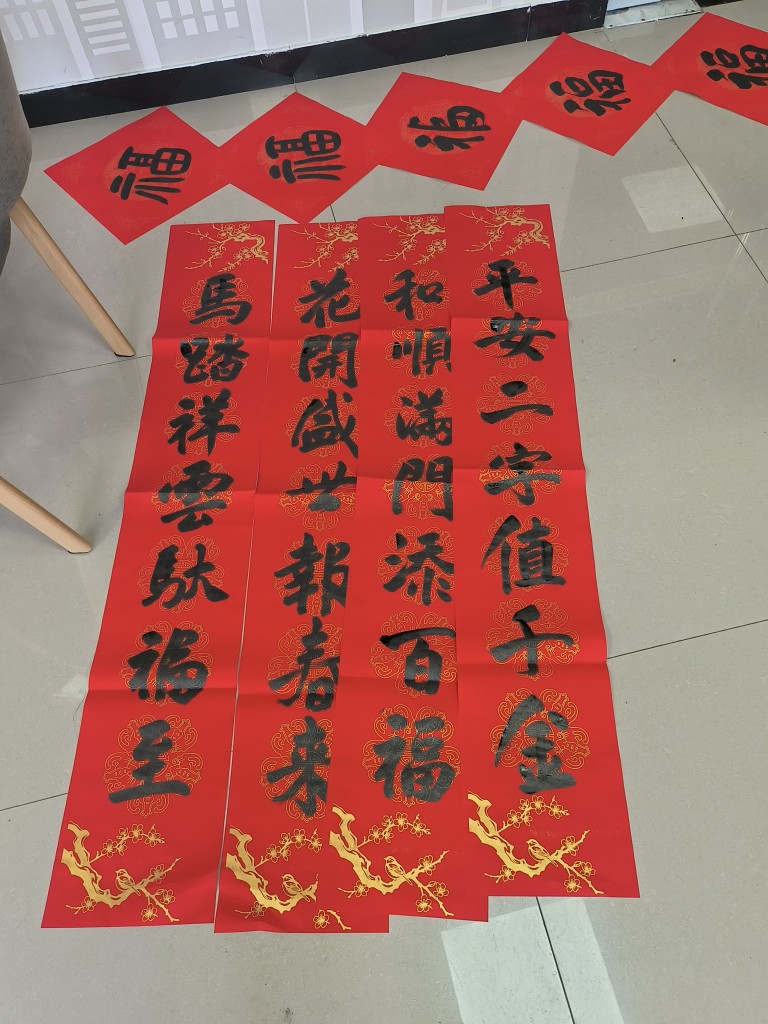 福
福
福
福
福
平安二字值千金
和順滿門添百福
花開盛世報春来
馬踏祥雲馱福至